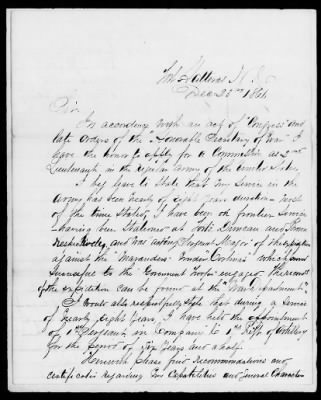 Fort Hatteras N. C.
Dec 25th 1861
Sir
In accordance with an act of "Congress" and
late orders of the "Honorable Secretary of War" I
have the honor to apply for a Commission as 2nd
Lieutenant in the regular Army of the United States,
I beg leave to State that my Service in the
Army has been nearly of Eight years duration most
of the time Stationed, I have been on frontier Service
having been Stationed at Forts Duncan and Brown
respectively, and was acting Sergeant Major of the Expedition
against the "Marauders under Cortinas" which were
the result
of the expedition can be found at the "War Department."
I would also respectfully State that during a Service
of nearly Eight years, I have held the appointment
of 1st Sergeant in Company "L" 1st Regt. of Artillery
for the period of two years and a half.
Herewith please find recommendations and
certificates regarding my Capabilities and general Character